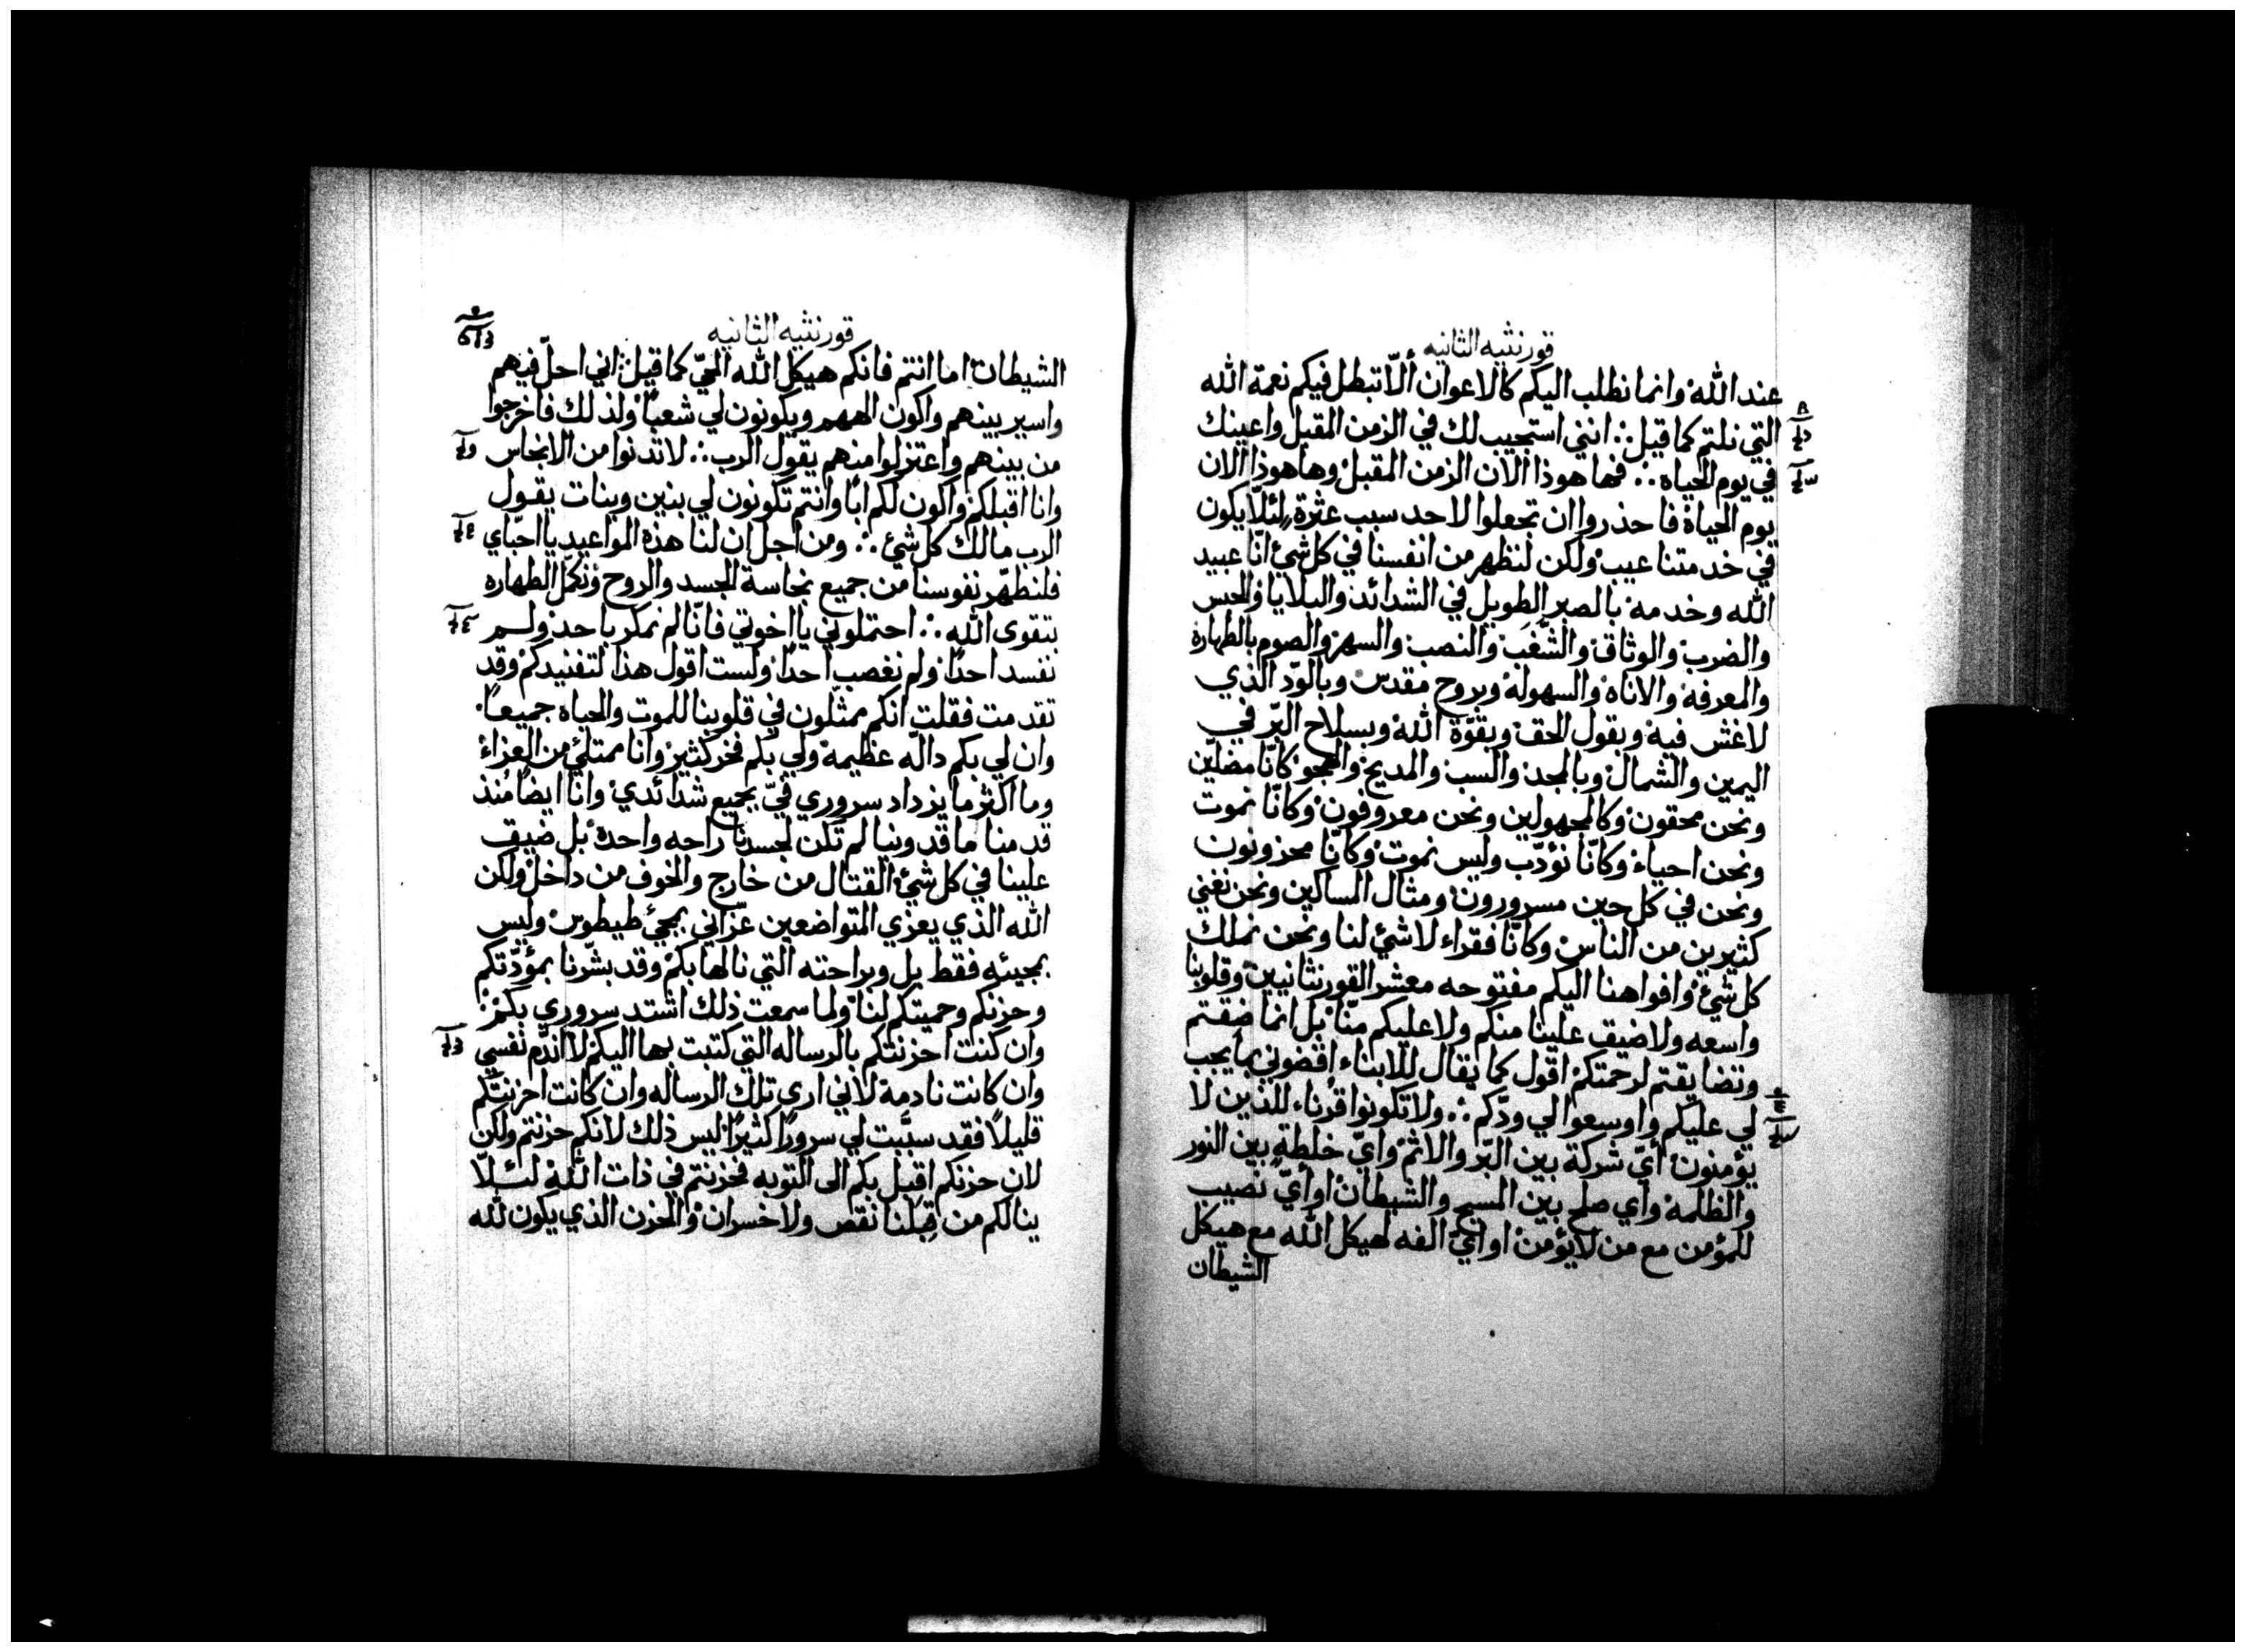 قورنثيه الثانيه
عند الله وانما نطلب اليكم كالاعوان ألّا تبطل فيكم نعمة الله
التي نلتم كما قيل ∴ انني استجيب لك في الزمن المقبل واعينك
في يوم الحياه ∴ فها هوذا الان الزمن المقبل وها هوذا الان
يوم الحياة فاحذروا ان تجعلوا لاحد سبب عثرة لئلّا يكون
في خدمتنا عيب ولكن لنظهر من انفسنا في كل شئ انّا عبيد
الله وخدمه بالصبر الطويل في الشدائد والبلايا والحبس
والضرب والوثاق والشَّغَب والنصب والسهر والصوم بالطهارة
والمعرفة والاناه والسهولة وبروح مقدس وبالودّ الذي
لا غش فيه وبقول الحق وبقوّة الله وبسلاح البّر في
اليمين والشمال وبالمجد والسب والمديح والهجو كانّا مضلّين
ونحن محقون وكالمجهولين ونحن معروفون وكانّا نموت
ونحن احياء وكانّا نؤدّب وليس نموت وكانّا محزونون
ونحن في كل حين مسرورون ومثال المساكين ونحن نغني
كثيرين من الناس وكانّا فقراء لا شئ لنا ونحن نملك
كل شئ وافواهنا اليكم مفتوحه معشر القورنثانيين وقلوبنا
واسعه ولا ضيق علينا منكم ولا عليكم منّا بل انما ضقتم
وتضايقتم لرحمتكم اقول كما يقال للابناء اقضوني بما يجب
لي عليكم واوسعوا لي ودّكم ∴ ولا تكونوا قرناء للذين لا
يؤمنون أيّ شركة بين البّر والاثم وايّ خلطة بين النور
والظلمة وأي صلح بين المسيح والشيطان او أيّ نصيب
للمؤمن مع من لا يؤمن او أيّ الفه لهيكل الله مع هيكل
الشيطان
قورنثيه الثانيه
الشيطان اما انتم فانكم هيكل الله الحيّ كما قيل اني احلّ فيهم
واسير بينهم واكون الههم ويكونون لي شعبًا ولذلك فاخرجوا
من بينهم واعتزلوا منهم يقول الرب ∴ لا تدنوا من الانجاس
وانا اقبلكم واكون لكم ابًا وانتم تكونون لي بنين وبنات يقول
الرب مالك كل شئ ∴ ومن اجل ان لنا هذه المواعيد يا احبّاي
فلنطهّر نفوسنا من جميع نجاسة الجسد والروح ونكمّل الطهاره
بتقوى الله ∴ احتملوني يا اخوتي فانّا لم نمكر باحد ولم
نفسد احدًا ولم نغصب احدًا ولست اقول هذا لتفنيدكم وقد
تقدمت فقلت انكم ممثلون في قلوبنا للموت والحياه جميعًا
وان لي بكم دالّه عظيمه ولي بكم فخر كثير وانا ممتلئ من العزاء
وما اكثر ما يزداد سروري فيّ بجميع شدائدي وانا ايضًا مُنذ
قدمنا ماقدونيا لم تكن لجسدنا راحه واحدة بل ضيق
علينا في كل شئ القتال من خارج والخوف من داخل ولكن
الله الذي يعزي المتواضعين عزّاني بمجئ طيطوس وليس
بمجيئه فقط بل وبراحته التي نالها بكم وقد بشّرنا بمؤدّتكم
وحزنكم وحميتكم لنا ولما سمعت ذلك اشتد سروري بكم
وان كنت احزنتكم بالرساله التي كتبت بها اليكم لا اندّم نفسي
وان كانت نادمة لاني ارى تلك الرساله وان كانت احزنتكم
قليلاً فقد سبَّبت لي سرورًا كثيرًا ليس ذلك لانكم حزنتم ولكن
لان حزنكم اقبل بكم الى التوبه فحزنتم في ذات الله لئلّا
ينالكم من قِبَلنا نقص ولا خسران والحزن الذي يكون لله